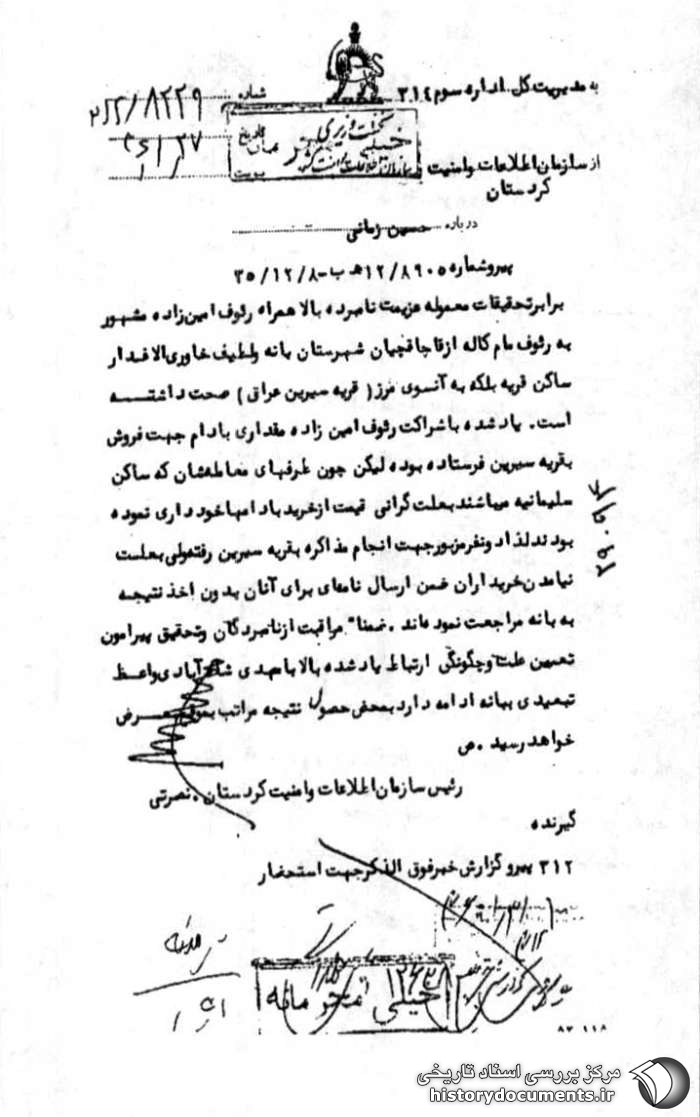 به مدیریت کل اداره سوم ۳۱۴
شماره ۲۲/۸۲۲۹
نخست وزیری
تاریخ
سازمان اطلاعات و امنیت کشور
پیوست
از سازمان اطلاعات و امنیت
کردستان
درباره حسین زمانی
پیرو شماره ۱۲/۸۹۰۵ ه ب - ۳۵/۱۲/۸
برابر تحقیقات معموله عزیمت نامبرده بالا همراه رئوف امین زاده مشهور
به رئوف مام کاله از قاچاقچیان شهرستان بانه ولطیف خاوری الاقدار
ساکن قریه بلکه به آنسوی مرز ( قریه سیرین عراق ) صحت داشتــــه
است. یاد شده باشراکت رئوف امین زاده مقداری بادام جهت فروش
بقریه سیرین فرستاده بوده لیکن چون طرفهای معامله شان که ساکن
سلیمانیه میباشند بعلت گرانی قیمت از خرید بادامها خودداری نموده
بودند لذا دونفر مزبور جهت انجام مذاکره بقریه سیرین رفته ولی بعلت
نیامدن خریداران ضمن ارسال نامه ای برای آنان بدون اخذ نتیجــه
به بانه مراجعت نموده اند . ضمنا" مراقبت از نامبردگان وتحقیق پیرامون
تعیین علت وچگونگی ارتباط یاد شده بالا با مهدی شاه آبادی واعــظ
تبعیدی ببانه ادامه دارد بمحض حصول نتیجه مراتب بموقع بعــرض
خواهد رسید . ص
رئیس سازمان اطلاعات و امنیت کردستان . نصرتی
گیرنده
۳۱۲ پیرو گزارش خبر فوق الذکر جهت استحضار
خیلی محرمانه
مرکز بررسی اسناد تاریخی
historydocuments.ir